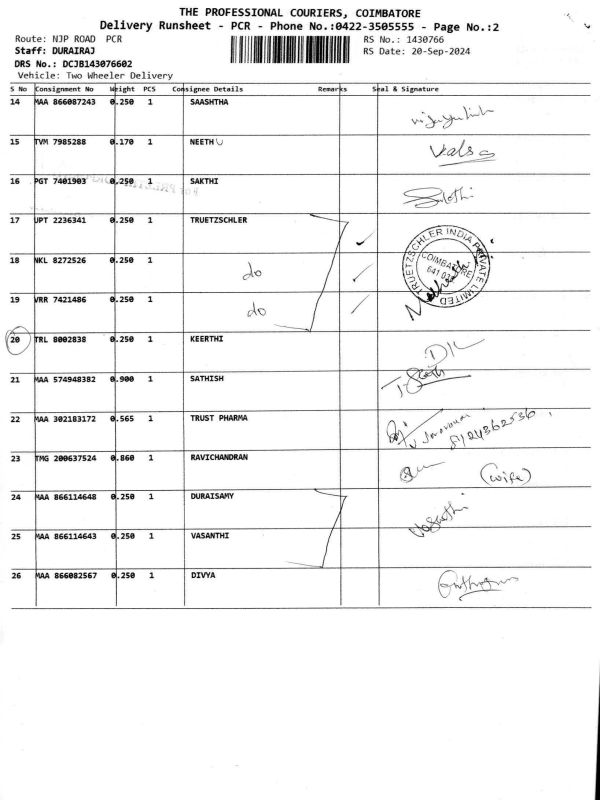 THE PROFESSIONAL COURIERS, COIMBATORE
Delivery Runsheet - PCR - Phone No.:0422-3505555 - Page No.:2
Route: NJP ROAD PCR RS No.: 1430766
Staff: DURAIRAJ RS Date: 20-Sep-2024
DRS No.: DCJB143076602
Vehicle: Two Wheeler Delivery
S No Consignment No Weight PCS Consignee Details Remarks Seal & Signature
14 MAA 866087243 0.250 1 SAASHTHA
15 TVM 7985288 0.170 1 NEETHU Valsa
16 PGT 7401903 0.250 1 SAKTHI Sakthi
17 UPT 2236341 0.250 1 TRUETZSCHLER
TRUETZSCHLER INDIA PRIVATE LIMITED
COIMBATORE
18 NKL 8272526 0.250 1 do
19 VRR 7421486 0.250 1 do
20 TRL 8002838 0.250 1 KEERTHI
21 MAA 574948382 0.900 1 SATHISH
22 MAA 302183172 0.565 1 TRUST PHARMA 8124362536
23 TMG 200637524 0.860 1 RAVICHANDRAN (wife)
24 MAA 866114648 0.250 1 DURAISAMY Vasanthi
25 MAA 866114643 0.250 1 VASANTHI
26 MAA 866082567 0.250 1 DIVYA